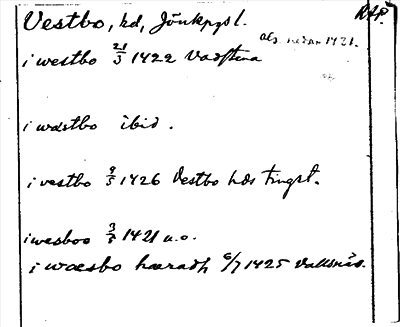 Vestbo, hd, Jönkpgs l.
RAP.
i westbo 21/3 1422 Vadstena
i wæstbo ibid.
i vestbo 9/5 1426 Vestbo hds tingst.
i wesboo 3/8 1421 u.o.
i woesbo hæradh 6/7 1425